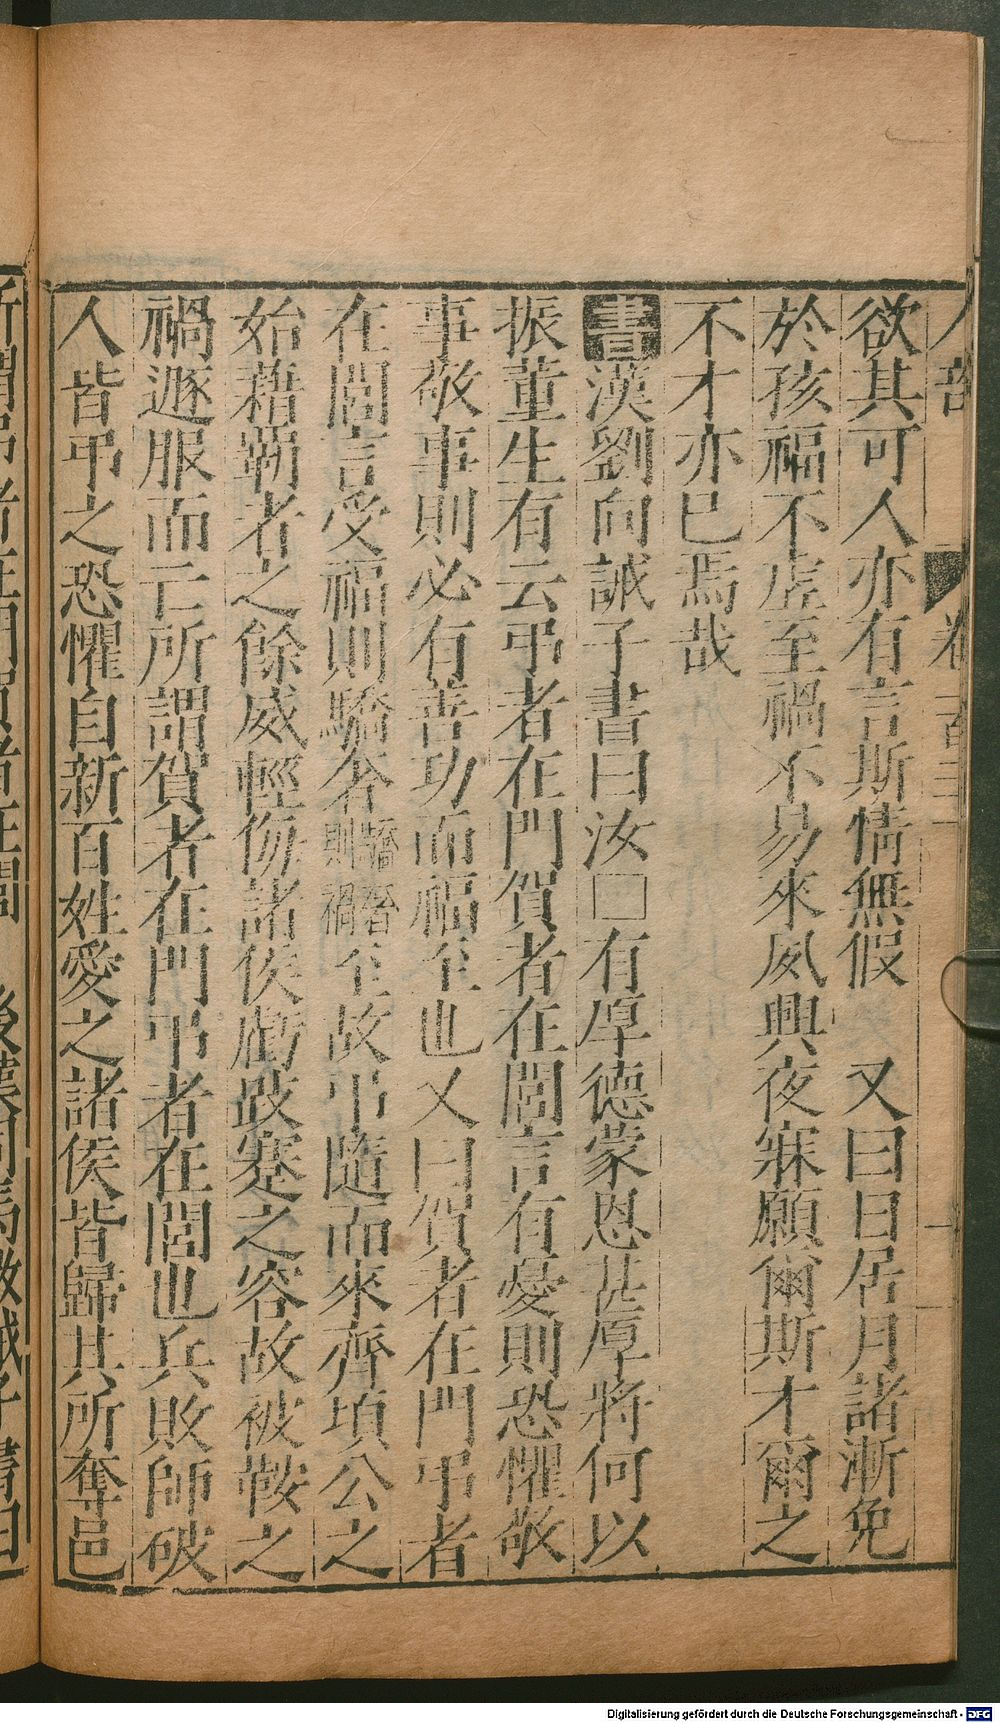 欲其可人亦有言斯情無假　又曰日居月諸漸免
於孩福不虛至禍不易來夙興夜寐願爾斯才爾之
不才亦已焉哉
書漢劉向誡子書曰汝□有厚德蒙恩甚厚將何以
振董生有云弔者在門賀者在閭言有憂則恐懼敬
事敬事則必有善功而福至也又曰賀者在門弔者
在閭言受福則驕奢驕奢則禍至故弔隨而來齊頃公之
始藉覇者之餘威輕侮諸侯虧跂蹇之容故被鞍之
禍遯服而亡所謂賀者在門弔者在閭也兵敗師破
人皆弔之恐懼自新百姓愛之諸侯皆歸其所奪邑
Digitalisierung gefördert durch die Deutsche Forschungsgemeinschaft - DFG